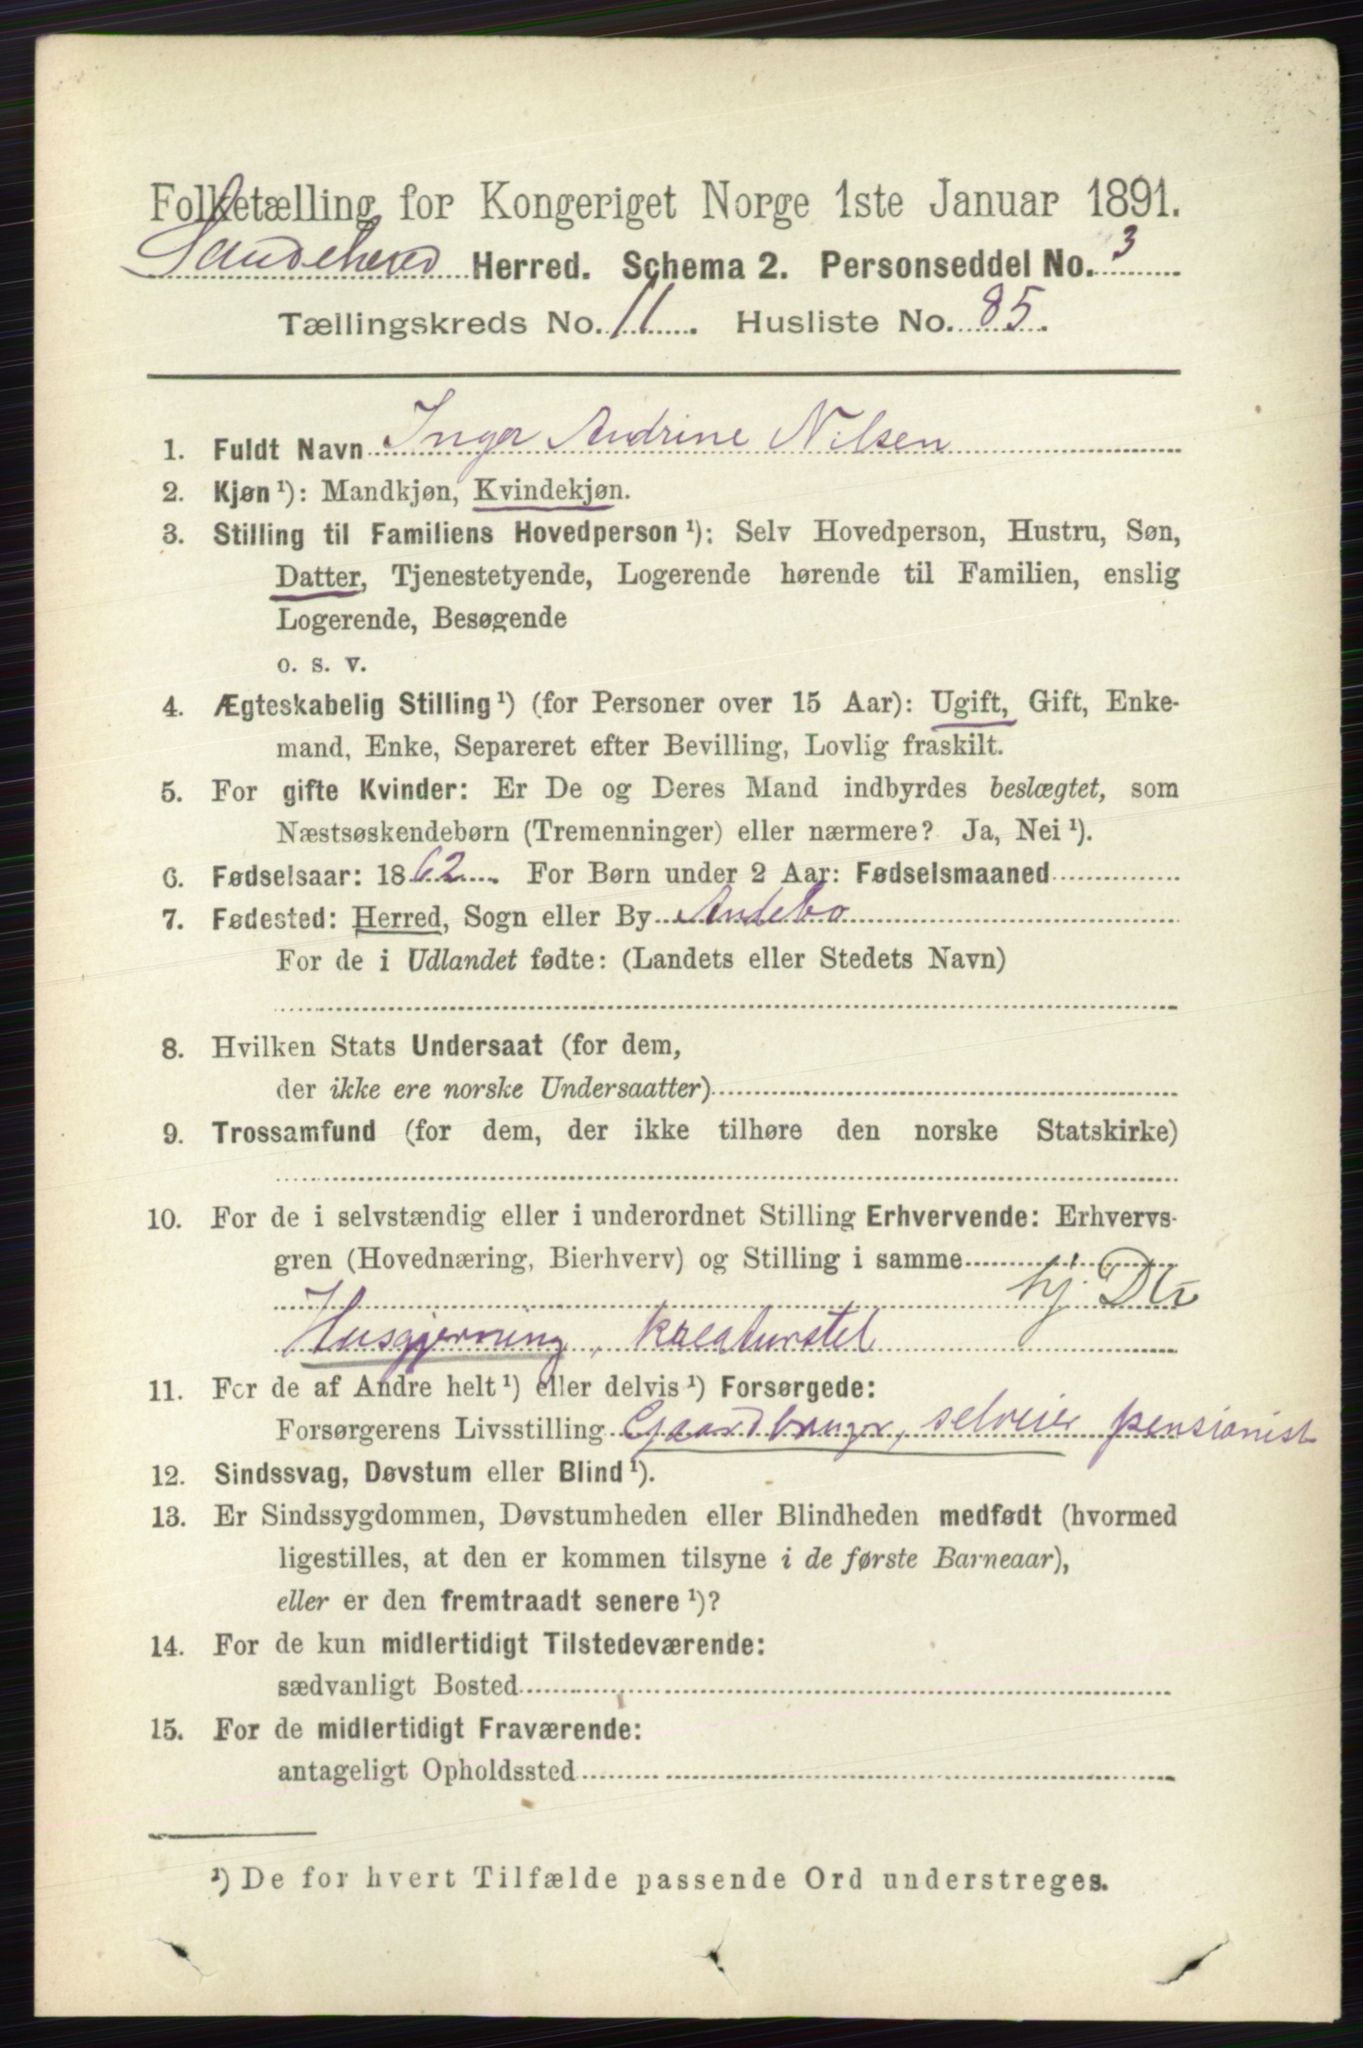 Folketælling for Kongeriget Norge 1ste Januar 1891.
Sandeherred Herred. Schema 2. Personseddel No. 3
Tællingskreds No. 11. Husliste No. 85.
1. Fuldt Navn Inga Andrine Nilsen
2. Kjøn ¹): Mandkjøn, Kvindekjøn.
3. Stilling til Familiens Hovedperson ¹): Selv Hovedperson, Hustru, Søn,
Datter, Tjenestetyende, Logerende hørende til Familien, enslig
Logerende, Besøgende
o. s. v.
4. Ægteskabelig Stilling ¹) (for Personer over 15 Aar): Ugift, Gift, Enke-
mand, Enke, Separeret efter Bevilling, Lovlig fraskilt.
5. For gifte Kvinder: Er De og Deres Mand indbyrdes beslægtet, som
Næstsøskendebørn (Tremenninger) eller nærmere? Ja, Nei ¹).
6. Fødselsaar: 1862. For Børn under 2 Aar: Fødselsmaaned
7. Fødested: Herred, Sogn eller By Andebo
For de i Udlandet fødte: (Landets eller Stedets Navn)
8. Hvilken Stats Undersaat (for dem,
der ikke ere norske Undersaatter)
9. Trossamfund (for dem, der ikke tilhøre den norske Statskirke)
10. For de i selvstændig eller i underordnet Stilling Erhvervende: Erhvervs-
gren (Hovednæring, Bierhverv) og Stilling i samme
hj. Dtr
Husgjerning, kreaturstel
11. For de af Andre helt ¹) eller delvis ¹) Forsørgede:
Forsørgerens Livsstilling Gaardbruger, selveier pensionist
12. Sindssvag, Døvstum eller Blind ¹).
13. Er Sindssygdommen, Døvstumheden eller Blindheden medfødt (hvormed
ligestilles, at den er kommen tilsyne i de første Barneaar),
eller er den fremtraadt senere ¹)?
14. For de kun midlertidigt Tilstedeværende:
sædvanligt Bosted
15. For de midlertidigt Fraværende:
antageligt Opholdssted
¹) De for hvert Tilfælde passende Ord understreges.